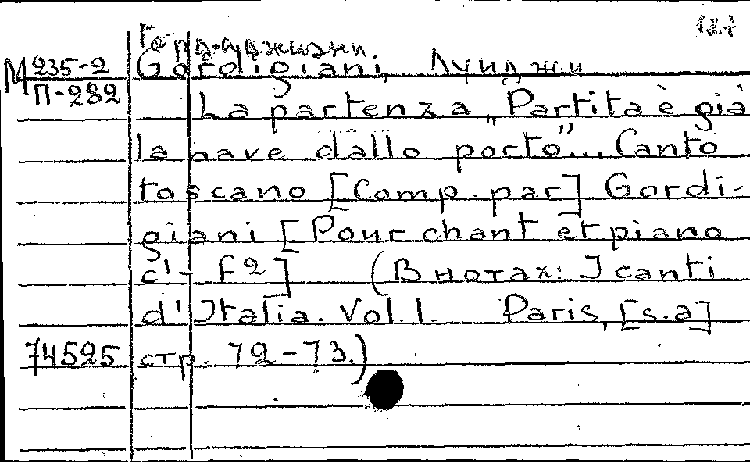 Гордиджиани
М 235-2 Gordigiani, Луиджи
П-282 La partenza „Partita è già
la nave dallo porto"... Canto
toscano [Comp. par] Gordi-
giani [Pour chant et piano
c'- f2] (В нотах: I canti
d'Italia. Vol. 1. Paris, [s.a]
74525 стр. 72-73.)